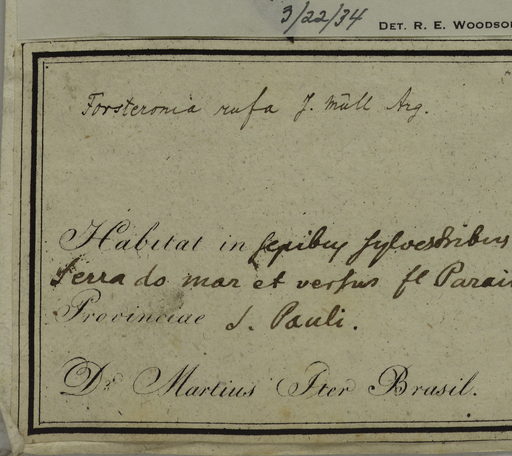 3/22/34 DET. R. E. WOODSO
Forsteronia rufa J. Müll Arg.
Habitat in sepibus sylvestribus
Serra do mar et versus fl Parai
Provinciae S. Pauli.
Dr Martius Iter Brasil.